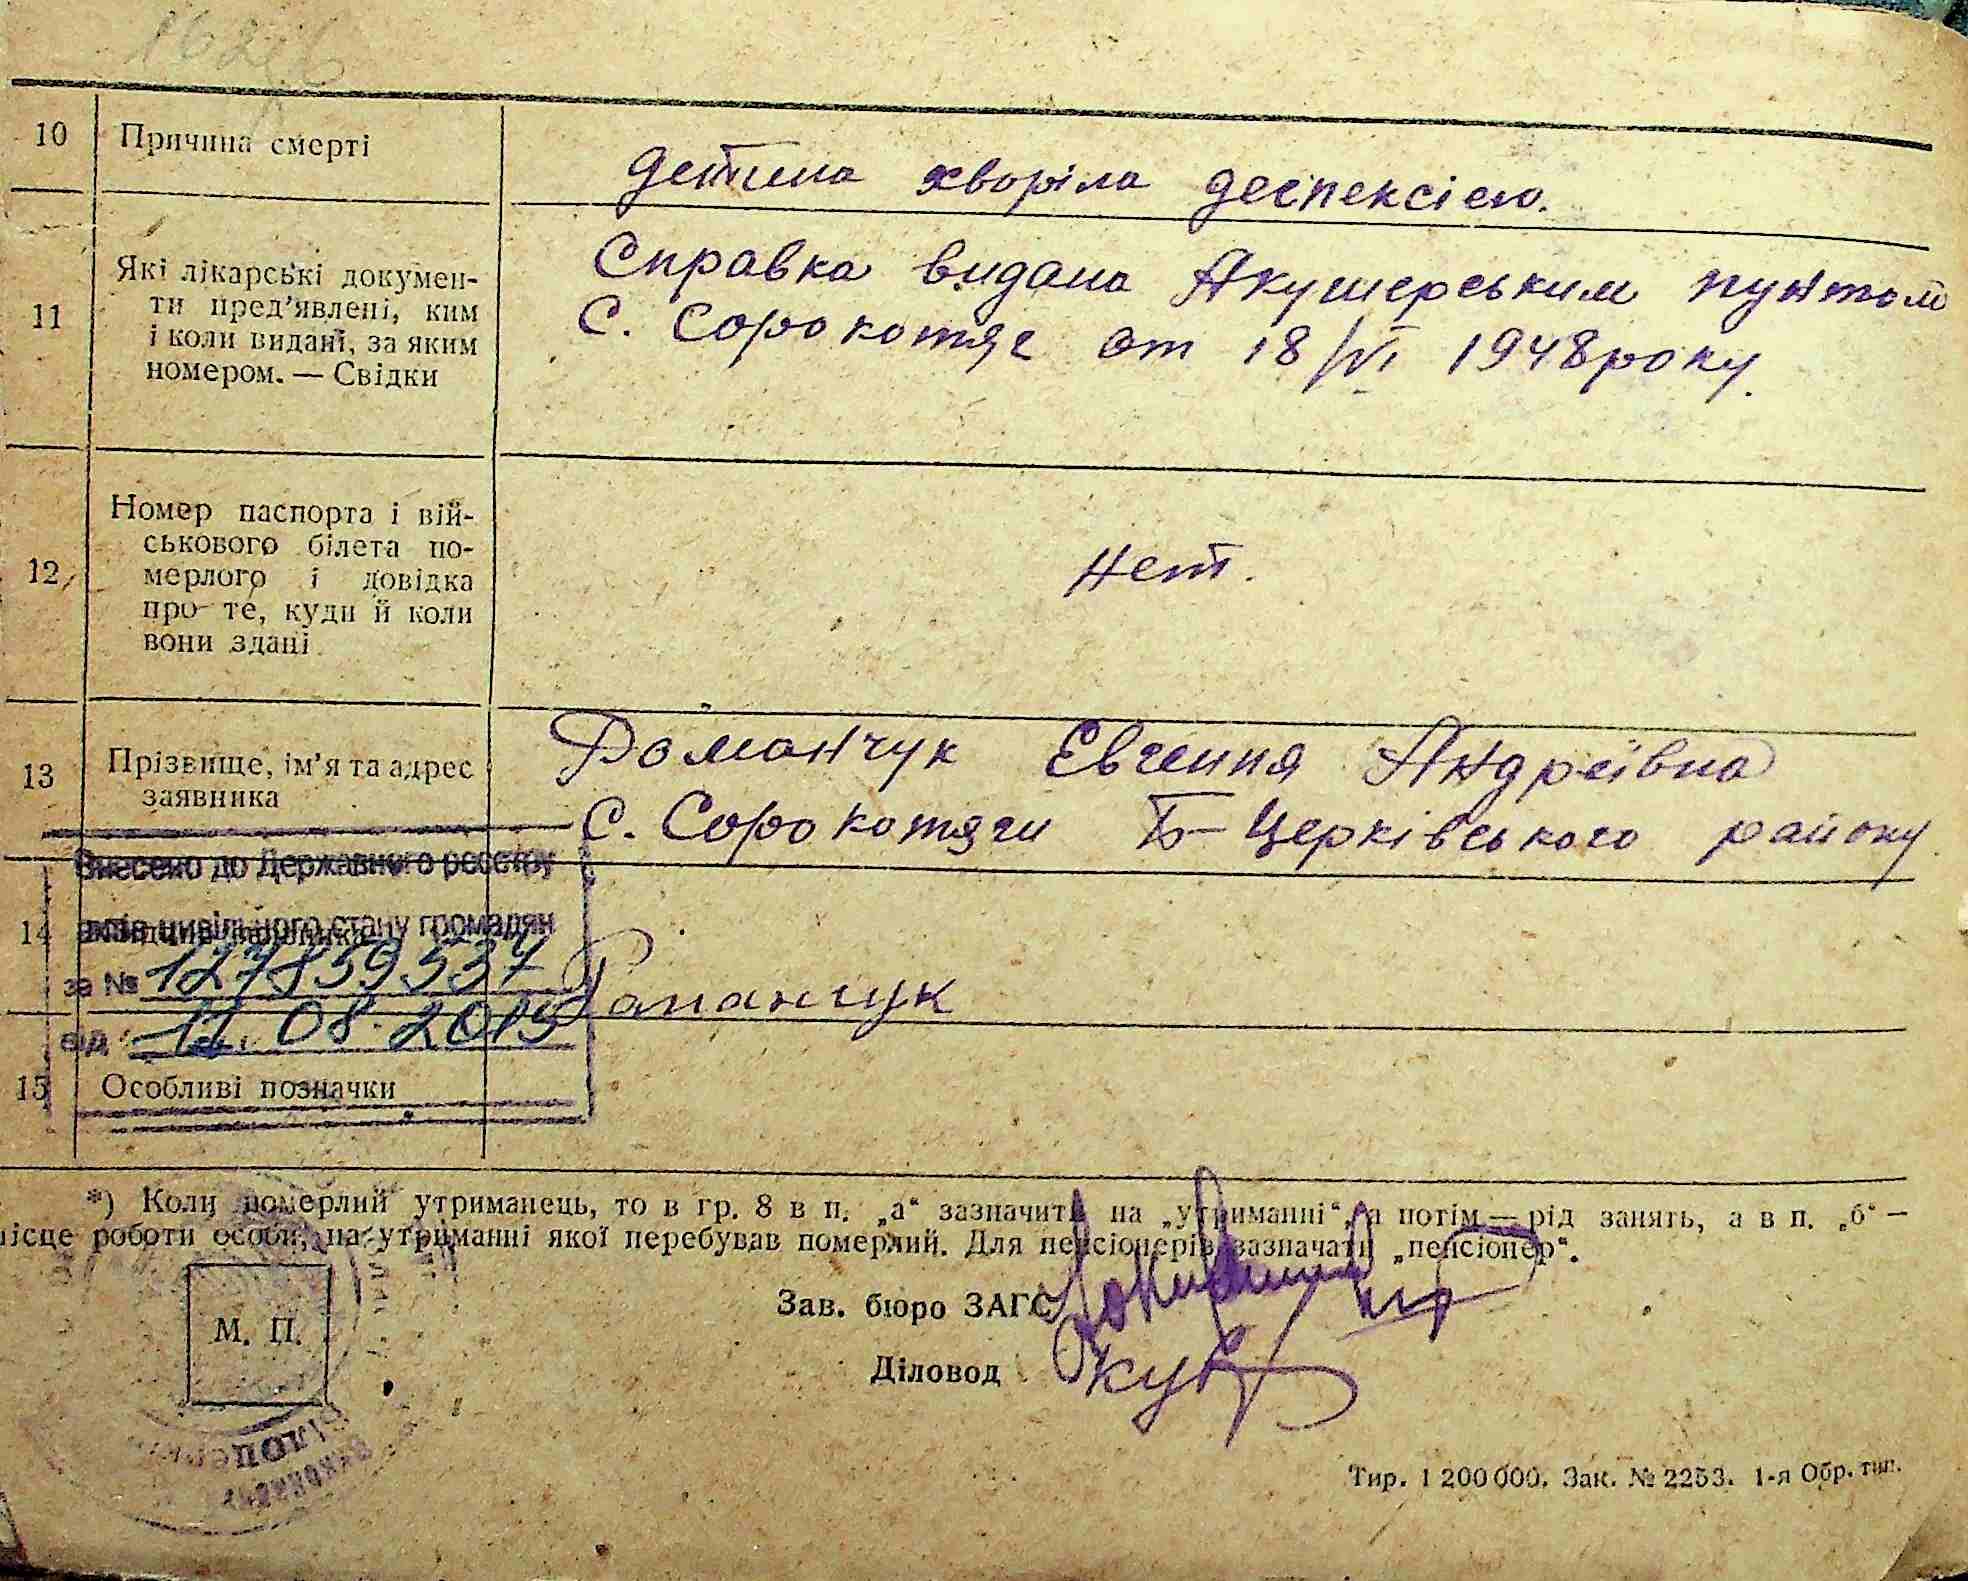 10
Причина смерті
детина хворіла деспексією.
11
Які лікарські докумен-
ти пред'явлені, ким
і коли видані, за яким
номером. — Свідки
Справка видана Акушерським пунктом
С. Сорокотяг от 18/VI 1948 року.
12
Номер паспорта і вій-
ськового білета по-
мерлого і довідка
про те, куди й коли
вони здані
нет.
13
Прізвище, ім'я та адрес
заявника
Романчук Евгения Андреївна
С. Сорокотяги Б-Церківського району
Внесено до Державного реєстру
14
актів цивільного стану громадян
за № 127859537
Романчук
від 11.08.2015
15
Особливі позначки
*) Коли померлий утриманець, то в гр. 8 в п. „а“ зазначить на „утриманні“, а потім — рід занять, а в п. „б“ —
місце роботи особи, на утриманні якої перебував померлий. Для пенсіонерів зазначати „пенсіонер“.
Зав. бюро ЗАГС
М. П.
Діловод
Тир. 1 200 000. Зак. № 2253. 1-я Обр. тип.